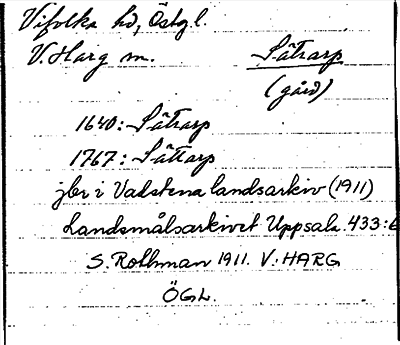 Vifolka hd, Östg l.
V. Harg sn. Sätrarp
(gård)
1640: Sätrarp
1767: Sättarp
jbr i Vadstena landsarkiv (1911)
Landsmålsarkivet Uppsala. 433:6
S. Rothman 1911. V. HARG
ÖGL.